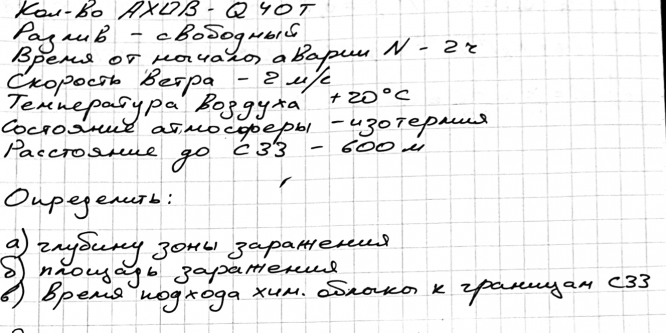 Кол-во АХОВ - Q 40 т
Разлив - свободный
Время от начала аварии N - 2 ч
Скорость ветра - 2 м/с
Температура воздуха +20°C
Состояние атмосферы - изотермия
Расстояние до СЗЗ - 600 м
Определить:
а) глубину зоны заражения
б) площадь заражения
в) время подхода хим. облака к границам СЗЗ